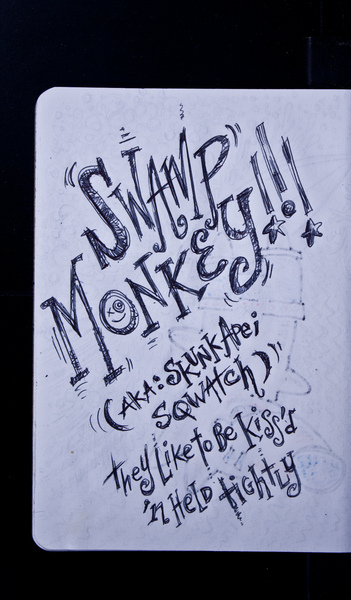 SWAMP
MONKEY!!!
(AKA: SKUNKApei
SQWATCH)
they Like to Be Kiss'd
'n HeLD tightLY